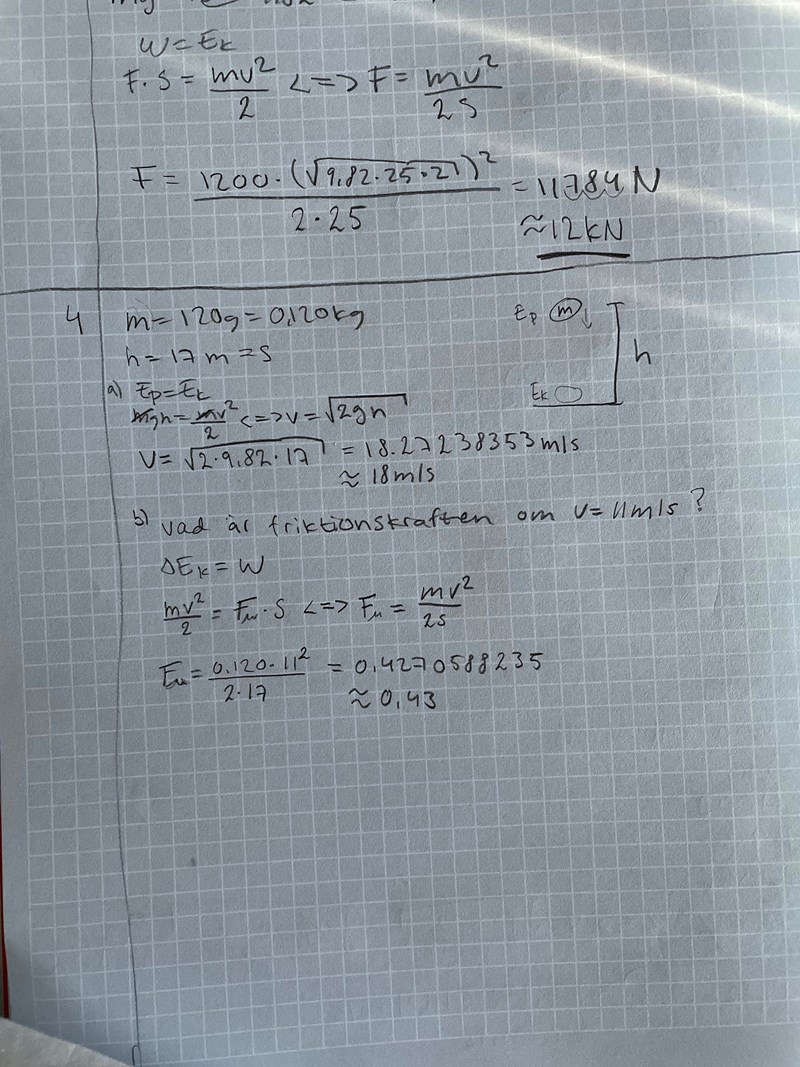 W = Ek
F · s = mv²/2 <=> F = mv²/2s
F = 1200 · (√9,82 · 25 · 2)²/2 · 25 = 11784 N
≈ 12 kN
4 m = 120g = 0,120kg
h = 17 m = s
Ep m
h
Ek
a) Ep = Ek
mgh = mv²/2 <=> v = √2gh
V = √2 · 9,82 · 17 = 18.27238353 m/s
≈ 18 m/s
b) vad är friktionskraften om v = 11 m/s ?
ΔEk = W
mv²/2 = Fμ · s <=> Fμ = mv²/2s
Fμ = 0,120 · 11²/2 · 17 = 0,4270588235
≈ 0,43